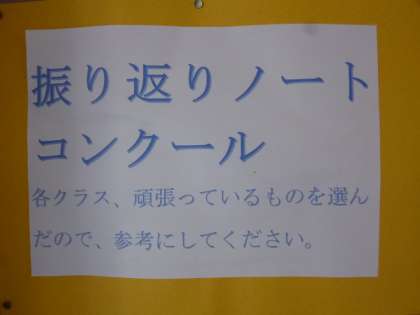 振り返りノート
コンクール
各クラス、頑張っているものを選ん
だので、参考にしてください。